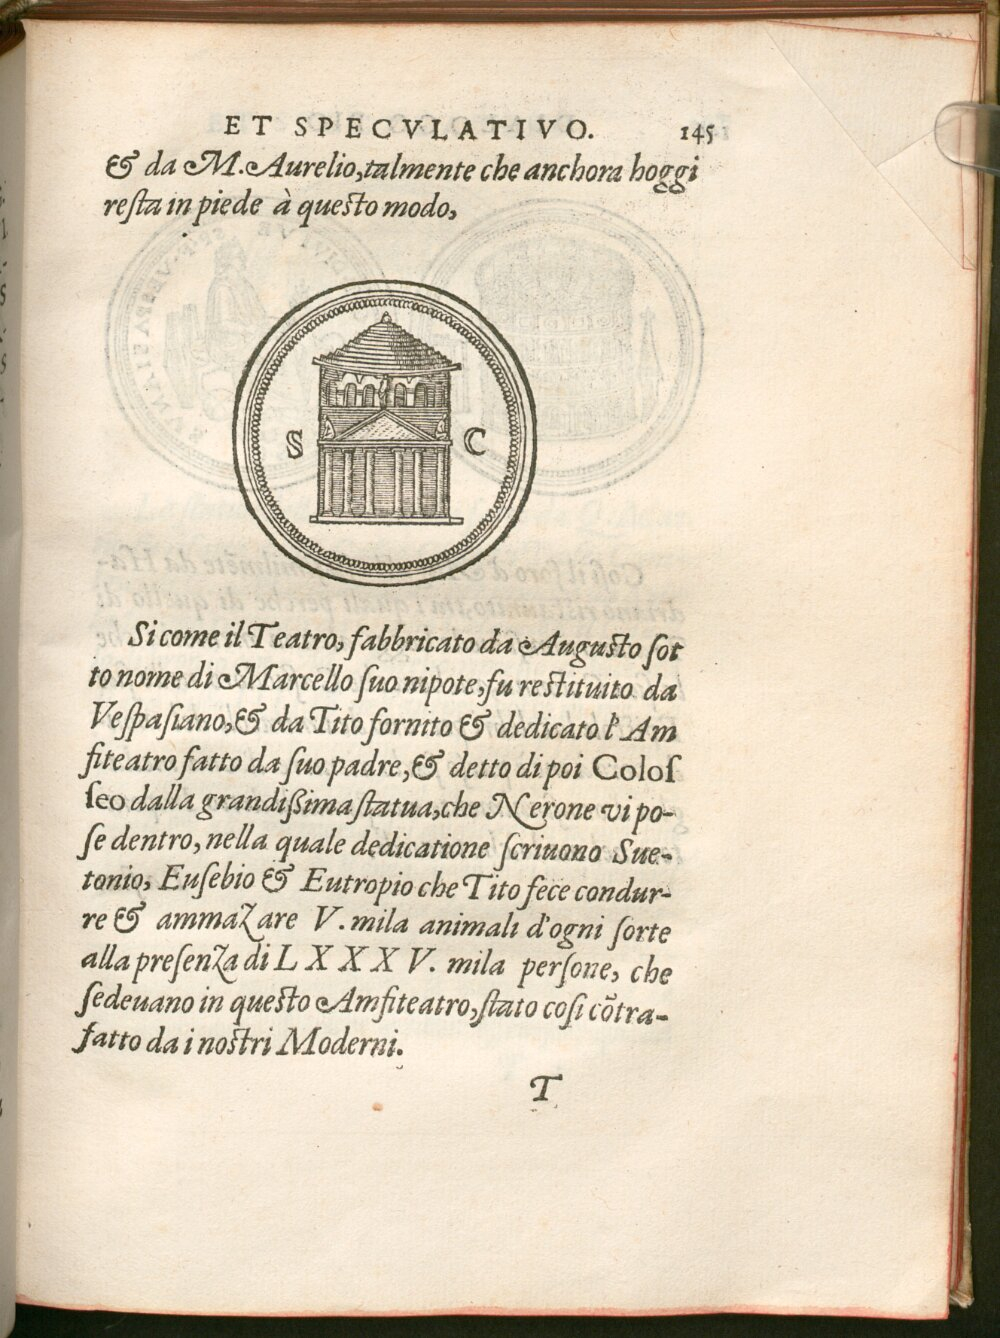 ET SPECVLATIVO. 145
& da M. Aurelio, talmente che anchora hoggi
resta in piede à questo modo,
S C
Si come il Teatro, fabbricato da Augusto sot
to nome di Marcello suo nipote, fu restituito da
Vespasiano, & da Tito fornito & dedicato l'Am
fiteatro fatto da suo padre, & detto di poi Colos
seo dalla grandißima statua, che Nerone vi po-
se dentro, nella quale dedicatione scriuono Sue-
tonio, Eusebio & Eutropio che Tito fece condur-
re & ammazare V. mila animali d'ogni sorte
alla presenza di LXXXV. mila persone, che
sedeuano in questo Amfiteatro, stato cosi cõtra-
fatto da i nostri Moderni.
T